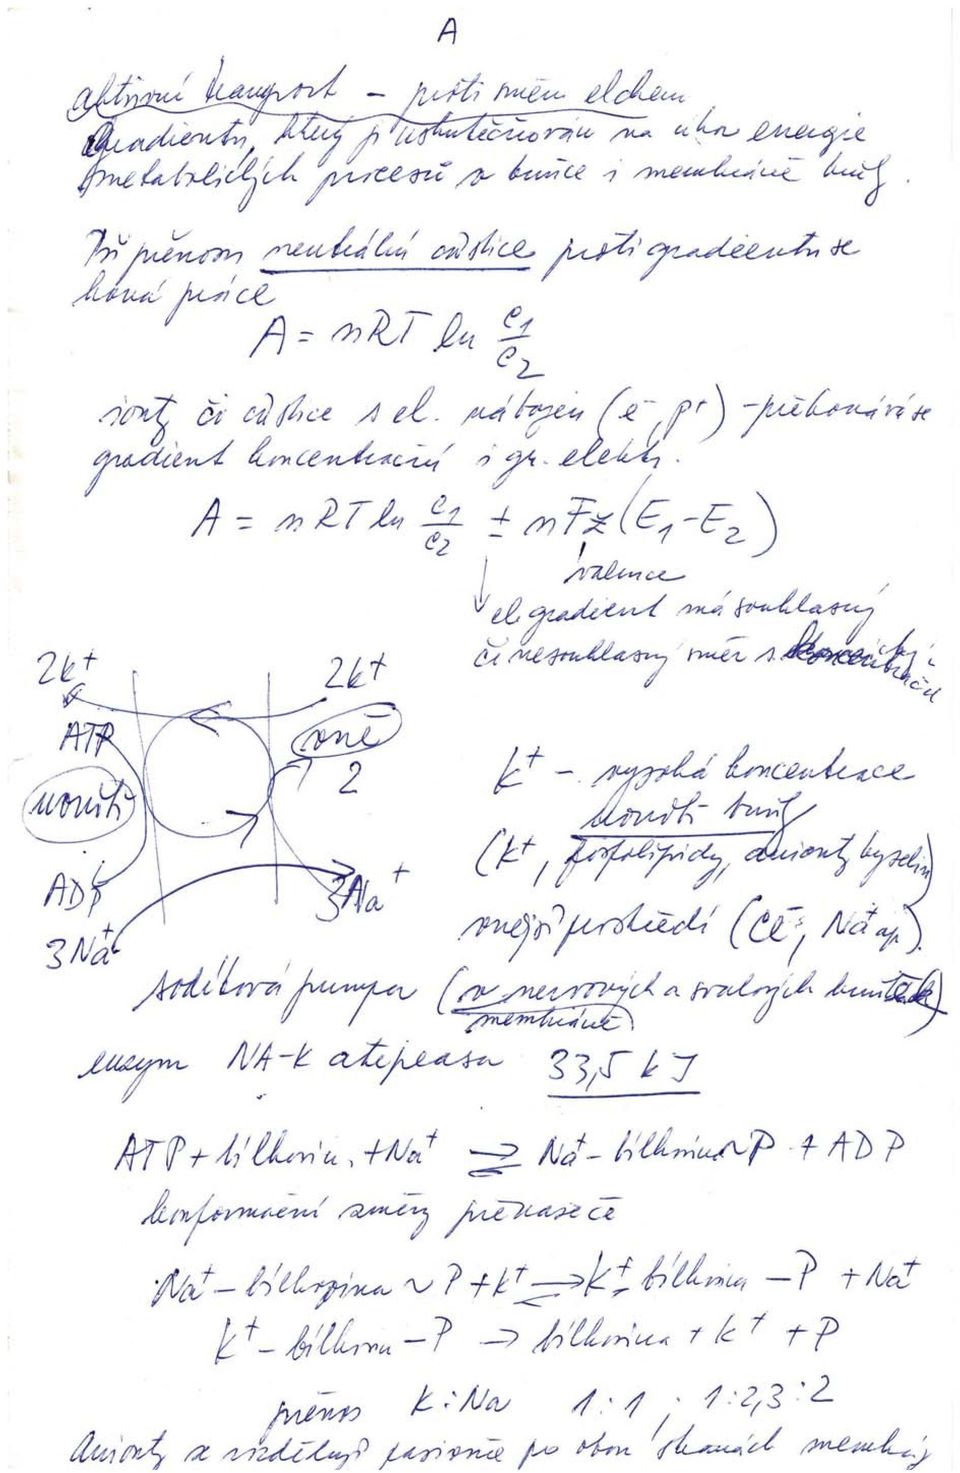 A
aktivní transport – proti směru elchem
gradientu, který je uskutečňován na úkor energie
metabolických procesů v buňce i membráně buň.
Při přenosu neutrální částice proti gradientu se
koná práce
A = nRT ln c1/c2
ionty či částice s el. nábojem (e⁻, p⁺) – překonává se
gradient koncentrační i gr. elektr.
A = nRT ln c1/c2 ± nFz(E1–E2)
valence
el gradient má souhlasný
či nesouhlasný směr s
2K⁺ 2K⁺
ATP vně
2
uvnitř
K⁺ – vysoká koncentrace
uvnitř buňky
(K⁺, fosfolipidy, anionty kyselin)
ADP 3Na⁺
vnější prostředí (Cl⁻, Na⁺ ap).
3Na⁺
sodíková pumpa (v nervových a svalových buňkách)
membráně
enzym NA–K atepeasa 33,5 kJ
ATP + bílkovina + Na⁺ ⇌ Na⁺– bílkovina ~ P + ADP
konformační změny přenašeče
Na⁺– bílkovina ~ P + K⁺ ⇌ K⁺– bílkovina – P + Na⁺
K⁺– bílkovina – P → bílkovina + K⁺ + P
přenos K : Na 1 : 1 , 1 : 2, 3 : 2
Anionty se rozdělují pasivně po obou stranách membrány